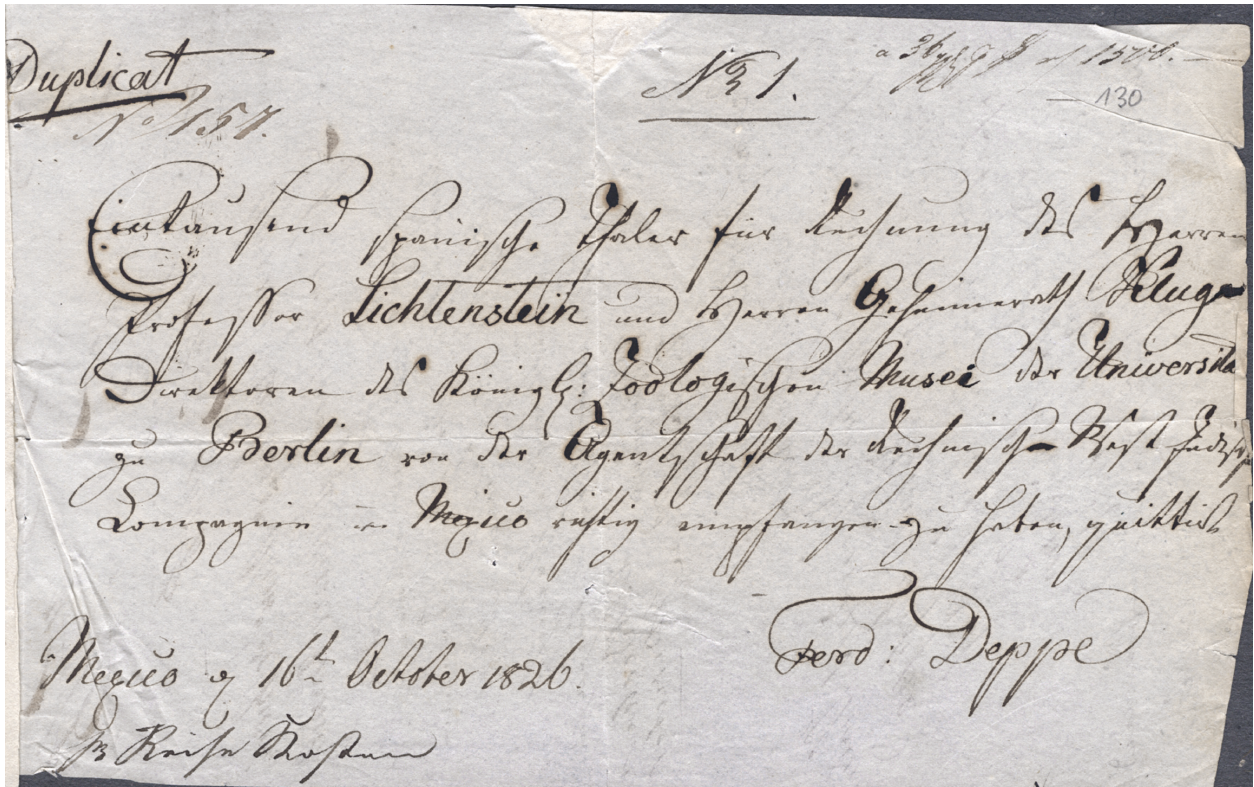 Duplicat
No 1.
1500.
130
No 157.
Eintausend spanische Thaler für Rechnung des Herren
Professor Lichtenstein und Herren Geheimerath Kluge
Direktoren des Königl: Zoologischen Musei der Universitä
zu Berlin von der Agentschaft der Rheinisch-West Indisch
Compagnie in Mexico richtig empfangen zu haben, quittirt
Ferd: Deppe
Mexico 16t October 1826.
Reise Kosten